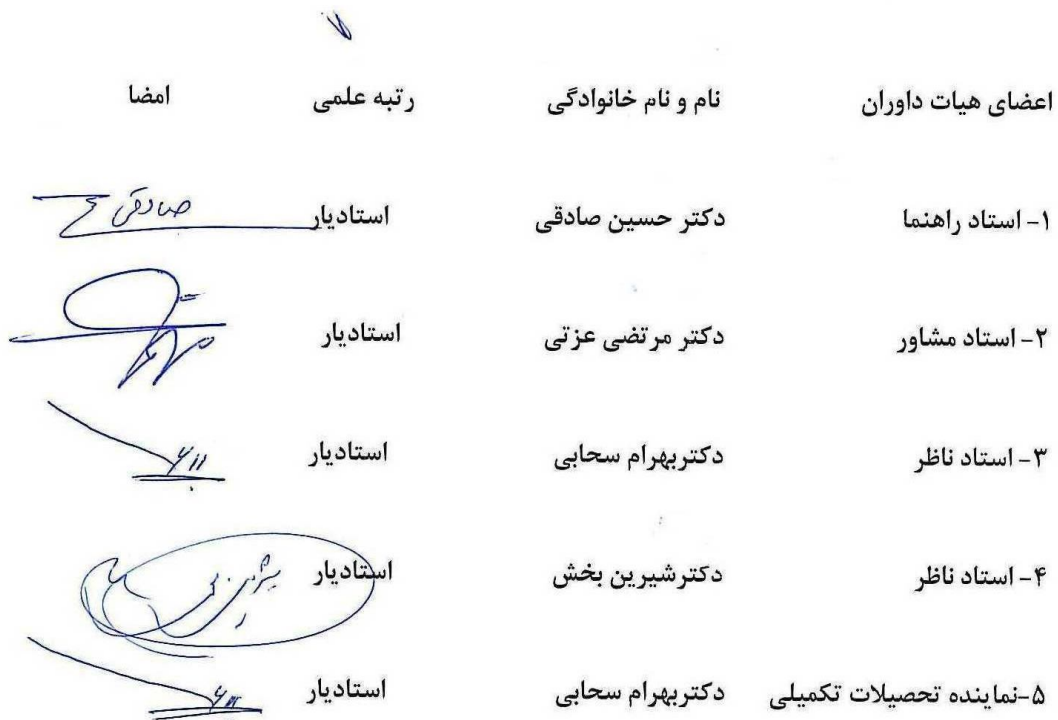 اعضای هیات داوران نام و نام خانوادگی رتبه علمی امضا
۱- استاد راهنما دکتر حسین صادقی استادیار صادقی
۲- استاد مشاور دکتر مرتضی عزتی استادیار
۳- استاد ناظر دکتربهرام سحابی استادیار
۴- استاد ناظر دکترشیرین بخش استادیار
۵-نماینده تحصیلات تکمیلی دکتربهرام سحابی استادیار